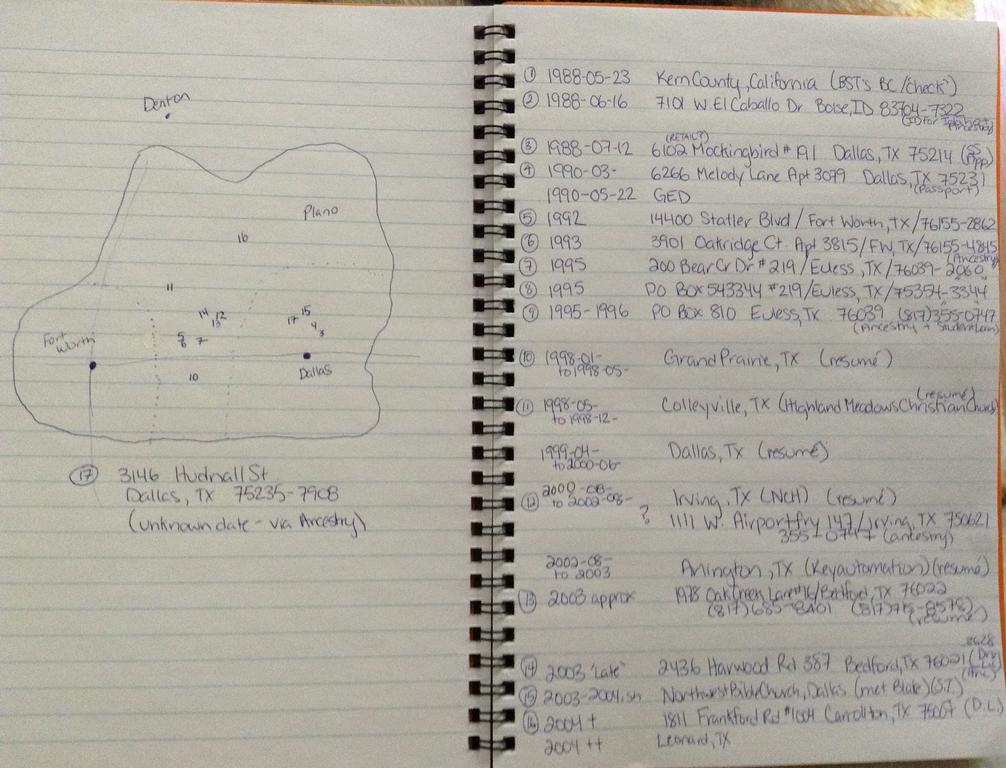 Denton
Plano
16
11
14
15
12
13
17
4
3
5
6
7
Fort
Worth
Dallas
10
17 3146 Hudnall St
Dallas, TX 75235-7908
(unknown date - via Ancestry)
1 1988-05-23 Kern County, California (BST's BC/check?)
2 1988-06-16 7101 W. El Caballo Dr Boise, ID 83704-7322
(RETAIL?)
3 1988-07-12 6102 Mockingbird # A1 Dallas, TX 75214 (SS App)
4 1990-03- 6266 Melody Lane Apt 3099 Dallas, TX 75231
(Passport)
1990-05-22 GED
5 1992 14400 Statler Blvd / Fort Worth, TX / 76155-2862
6 1993 3901 Oakridge Ct. Apt 3815/FW, TX/76155-4845
(Ancestry)
7 1995 200 Bear Cr Dr # 219 / Euless, TX / 76039-2060
8 1995 PO Box 543344 #219/Euless, TX/75354-3344
9 1995-1996 PO Box 810 Euless, TX 76039 (817)355-0747
(Ancestry + Student Loan)
10 1998-01- Grand Prairie, TX (resumé)
to 1998-05-
(resumé)
11 1998-05- Colleyville, TX (Highland Meadows Christian Church)
to 1998-12-
1999-04- Dallas, TX (resumé)
to 2000-06-
12 2000-08- Irving, TX (NCH) (resumé)
to 2002-08-
? 1111 W. Airport frwy 147/Irving, TX 750621
355-0747 (ancestry)
2002-08- Arlington, TX (Keyautomation) (resumé)
to 2003
13 2003 approx 1978 Oak Creek Lane /Bedford, TX 76022
(817)685-8401
(resume)
3628
14 2003 "late" 2436 Harwood Rd 387 Bedford, TX 76021
(Anc)
15 2003-2004.sn Northwest Bible Church, Dallas (met Blake) (S.T.)
16 2004 + 1811 Frankford Rd #1004 Carrollton, TX 75007 (D.L.)
2004 ++ Leonard, TX